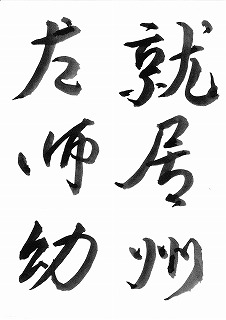 就居州
左師幼